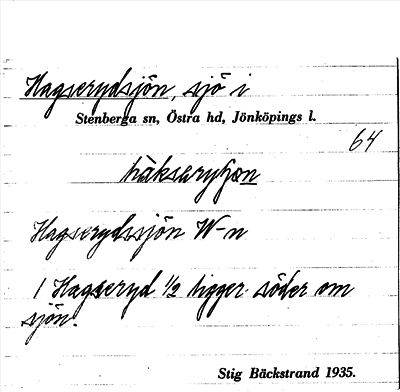 Hagserydsjön, sjö i
Stenberga sn, Östra hd, Jönköpings l.
64
Hagserydssjön W-n
1 Hagseryd ½ ligger söder om
sjön.
Stig Bäckstrand 1935.